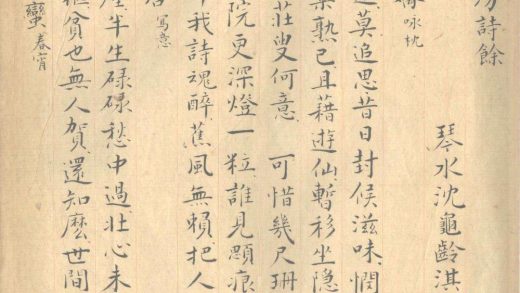 詩餘
琴水沈龜齡淇
詠枕
莫追思昔日封侯滋味憫
熟已且藉遊仙暫移坐隐
莊叟何意 可惜幾尺珊
院更深燈一粒誰見顋痕
我詩魂醉蕉風無賴把人
寫意
半生碌碌愁中過壯心未
貧也無人賀還知麽世間
蠻春宵